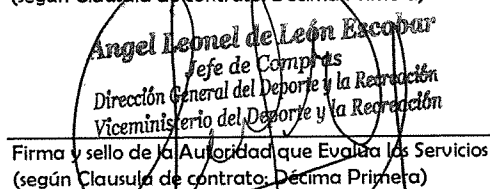 (según Clausula de contrato: Décima Primera)
Angel Leonel de León Escobar
Jefe de Compras
Dirección General del Deporte y la Recreación
Viceministerio del Deporte y la Recreación
Firma y sello de la Autoridad que Evalúa los Servicios
(según Clausula de contrato: Décima Primera)